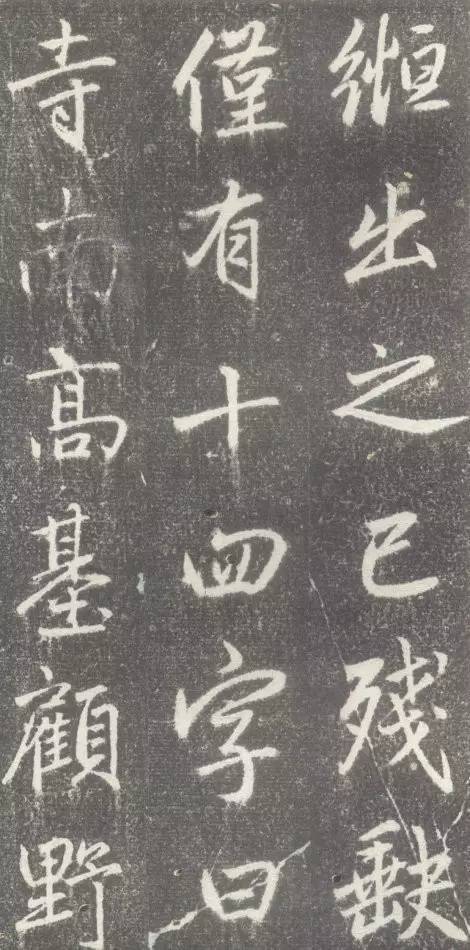 縆出之已残缺
僅有十四字曰
寺南高基顧野